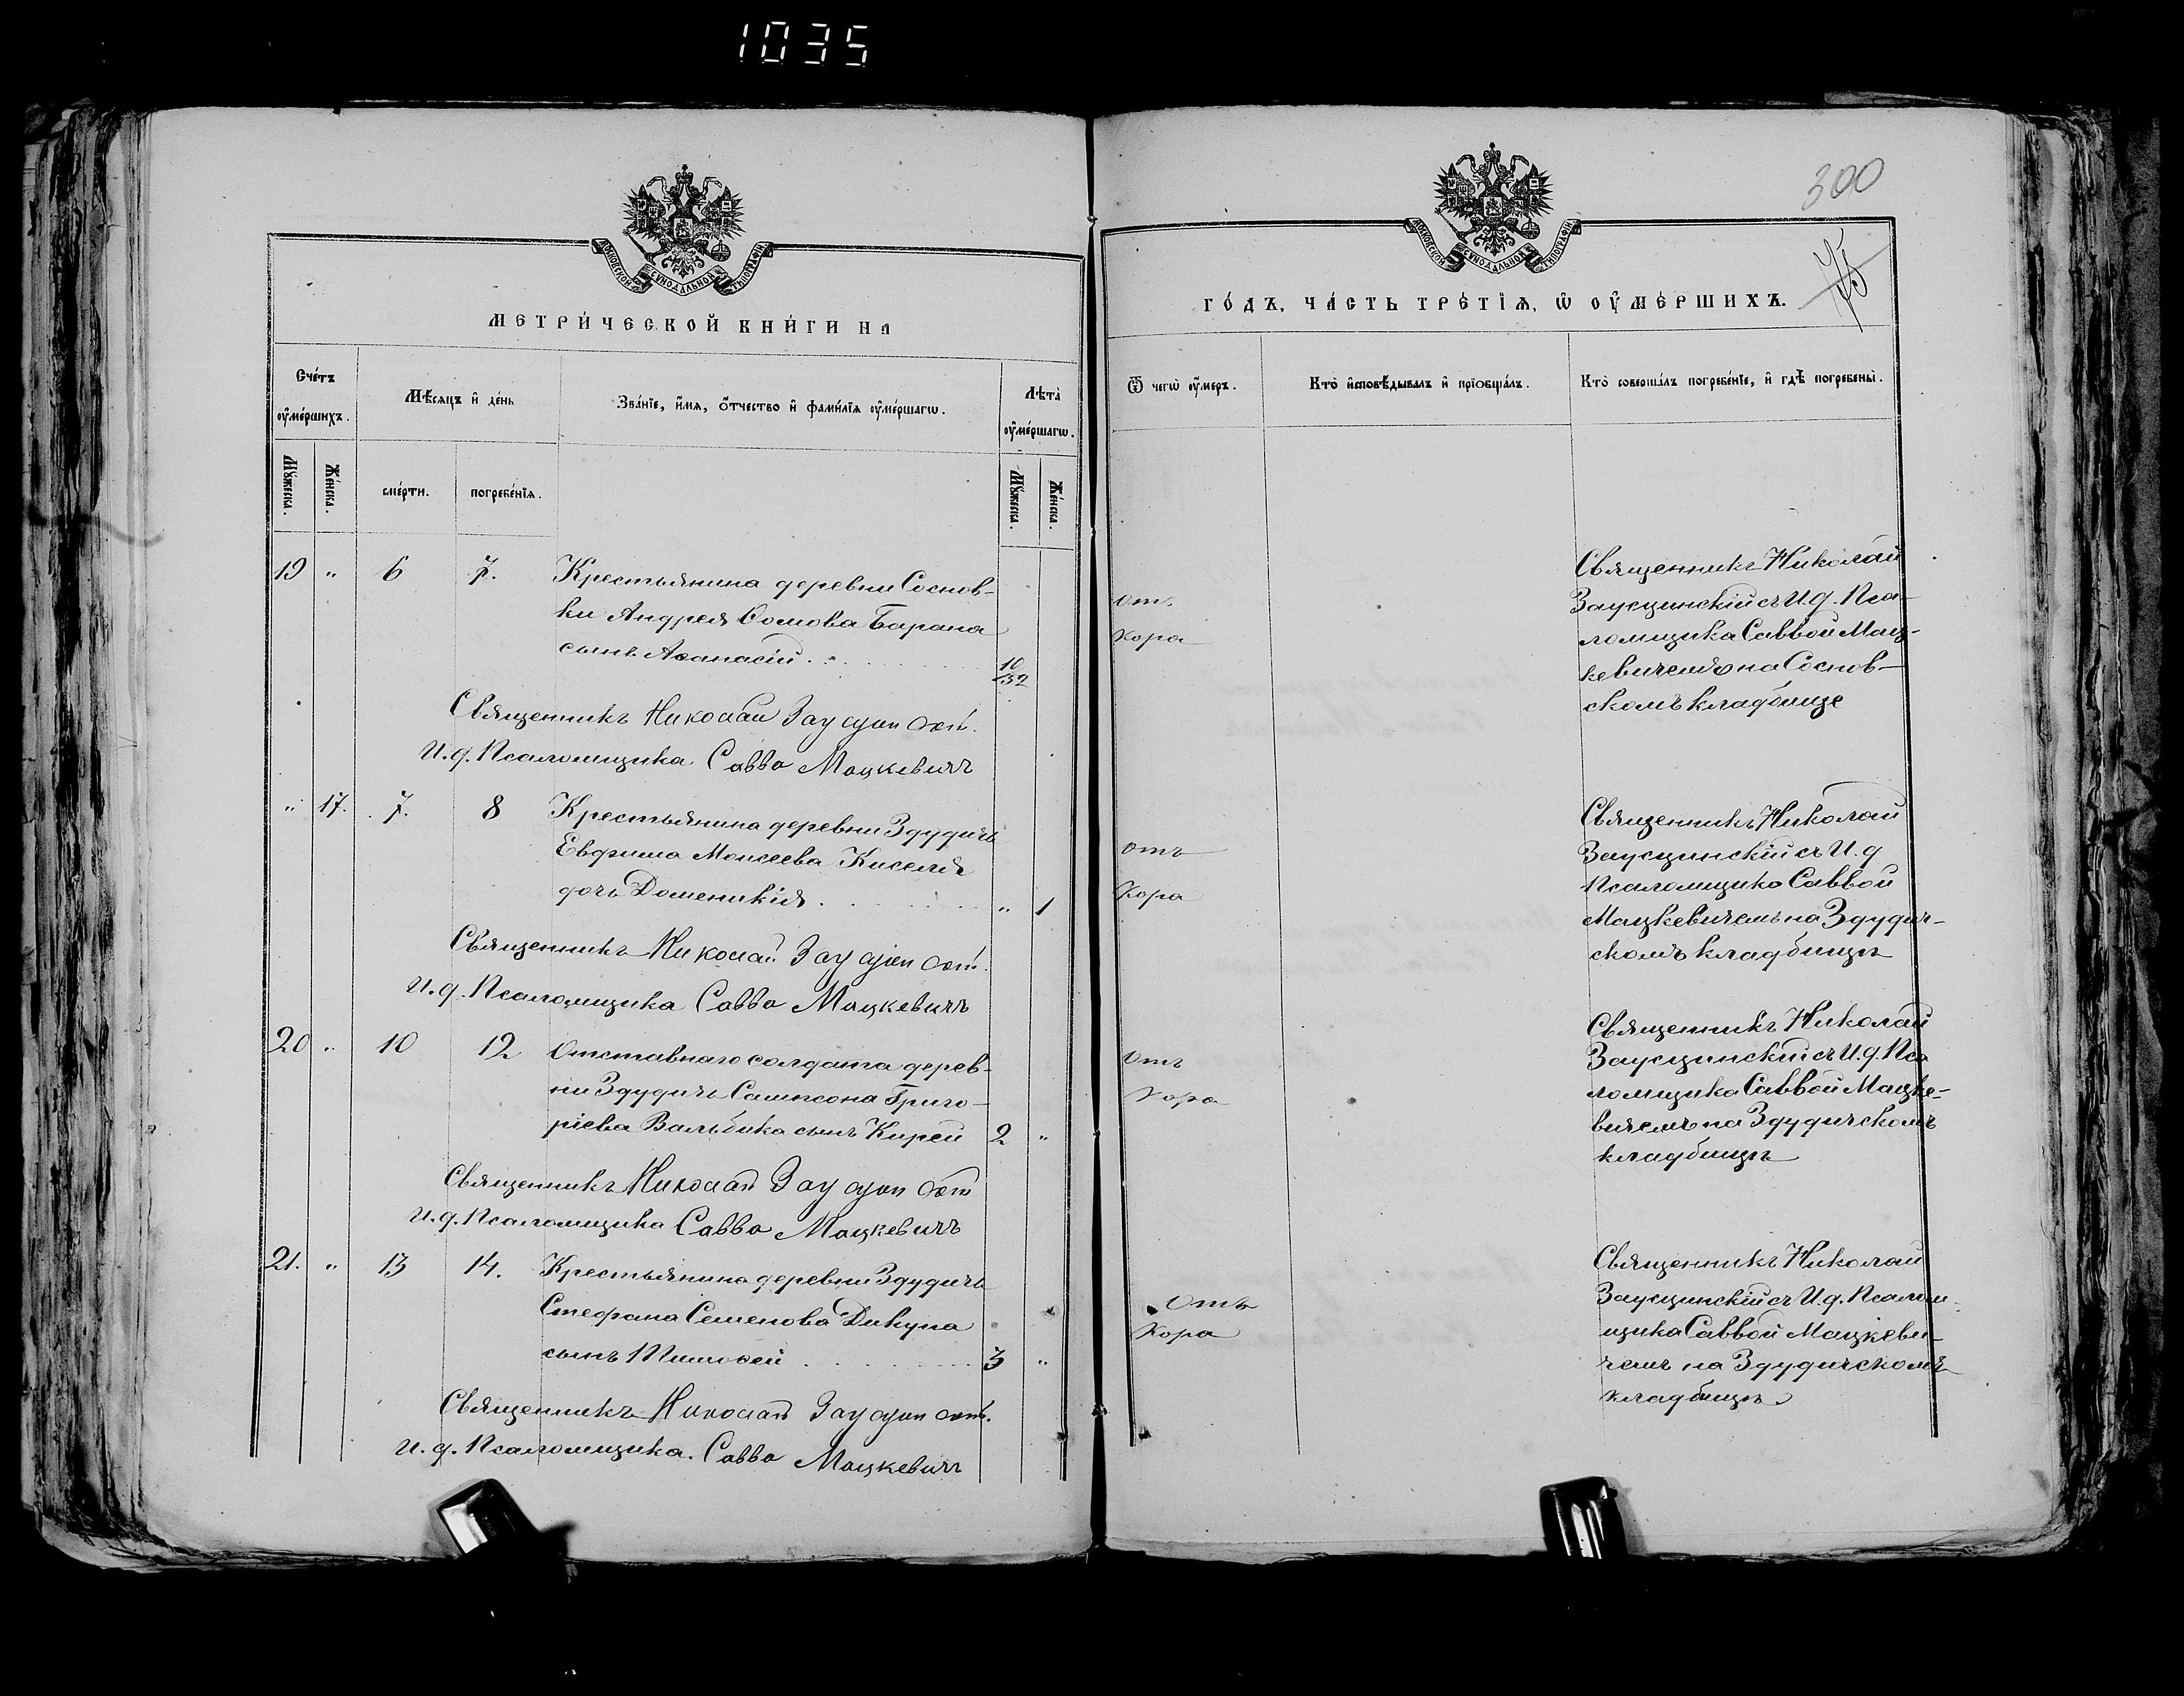 1035
МОСКОВСКОЙ СѴНОДАЛЬНОЙ ТИПОГРАФІИ
МЕТРИ́ЧЕСКОЙ КНИ́ГИ НА
Сче́тъ ᲂу҆ме́ршихъ.
Мѣ́сяцъ и҆ де́нь
Зва́нїе, и҆́мя, ѻ҆́тчество и҆ фами́лїѧ ᲂу҆ме́ршагѡ.
Лѣ́та ᲂу҆ме́ршагѡ.
Мꙋ́жеска.
Же́нска.
сме́рти.
погребе́нїѧ.
Мꙋ́жеска.
Же́нска.
19 " 6 7. Крестьянина деревни Соснов-
ки Андрея Сомова Барана
сынъ Аѳанасій . . . 10/52
Священникъ Николай
И. д. Псаломщика Савва Мацкевичъ
" 17. 7. 8 Крестьянина деревни Здудичъ
Евфима Моисеева Киселя
дочь Доменикія . . . " 1
Священникъ Николай
И. д. Псаломщика Савва Мацкевичъ
20 " 10 12 Отставнаго солдата дерев-
ни Здудичъ Сампсона Григо-
ріева Вальбика сынъ Кирей 2 "
Священникъ Николай
И. д. Псаломщика Савва Мацкевичъ
21. " 13 14. Крестьянина деревни Здудичъ
Стефана Семенова Дикуна
сынъ Тимоѳей . . . 3 "
Священникъ Николай
И. д. Псаломщика. Савва Мацкевичъ
300
МОСКОВСКОЙ СѴНОДАЛЬНОЙ ТИПОГРАФІИ
75
ГО́ДЪ, ЧА́СТЬ ТРЕ́ТЇѦ, Ѡ҆ ОУ҆МЕ́РШИХЪ.
Ѿ чегѡ̀ ᲂу҆́меръ.
Кто̀ и҆сповѣ́дывалъ и҆ прїобща́лъ.
Кто̀ соверша́лъ погребе́нїе, и҆ гдѣ̀ погребены̀.
от.
кора
Священникъ Николай
Заусцинскій съ И. д. Пса-
ломщика Саввой Мац-
кевичемъ на Соснов-
скомъ кладбище
отъ
кора
Священникъ Николай
Заусцинскій съ И. д
Псаломщика Саввой
Мацкевичемъ на Здудич-
скомъ кладбищѣ
отъ
кора
Священникъ Николай
Заусцинскій съ И. д. Пса
ломщика Саввой Мацке-
вичемъ на Здудичскомъ
кладбищѣ
Отъ
кора
Священникъ Николай
Заусцинскій съ И. д. Псалом-
щика Саввой Мацкеви-
чемъ на Здудичскомъ
кладбищѣ